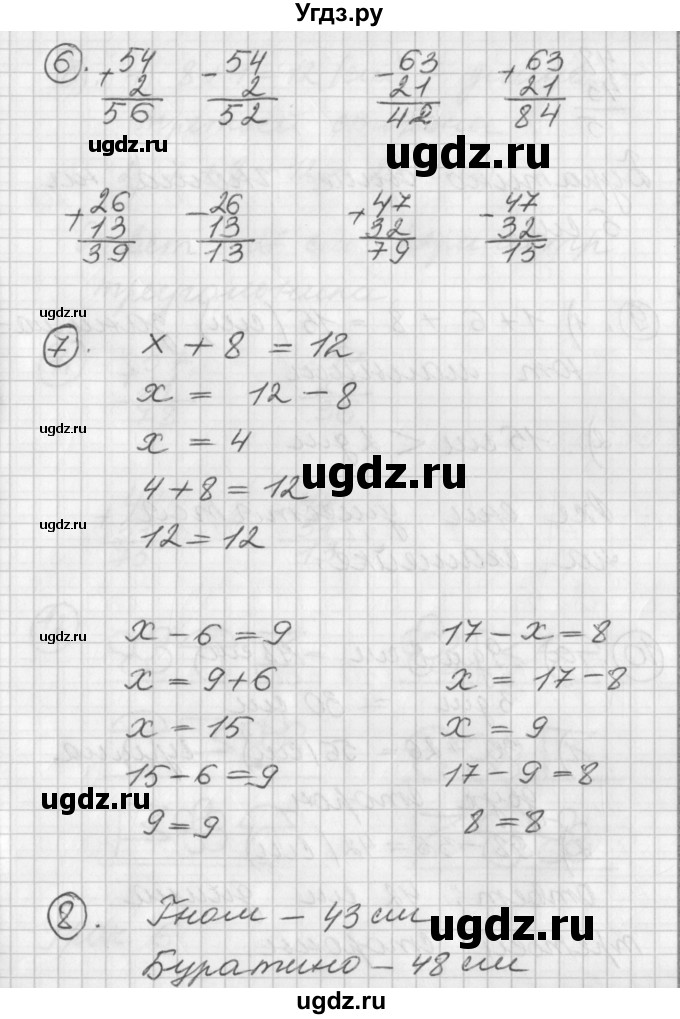 Угдз.ру
6. +54 -54 -63 +63
2 2 21 21
56 52 42 84
ugdz.ru ugdz.ru
+26 -26 +47 -47
13 13 32 32
39 13 79 15
ugdz.ru
7. x + 8 = 12
x = 12 - 8
ugdz.ru
x = 4
ugdz.ru
4 + 8 = 12
ugdz.ru
12 = 12
ugdz.ru
x - 6 = 9 17 - x = 8
x = 9 + 6 x = 17 - 8
x = 15 x = 9
15 - 6 = 9 17 - 9 = 8
ugdz.ru
9 = 9 8 = 8
8. Гном - 43 см
ugdz.ru
Буратино - 48 см
ugdz.ru